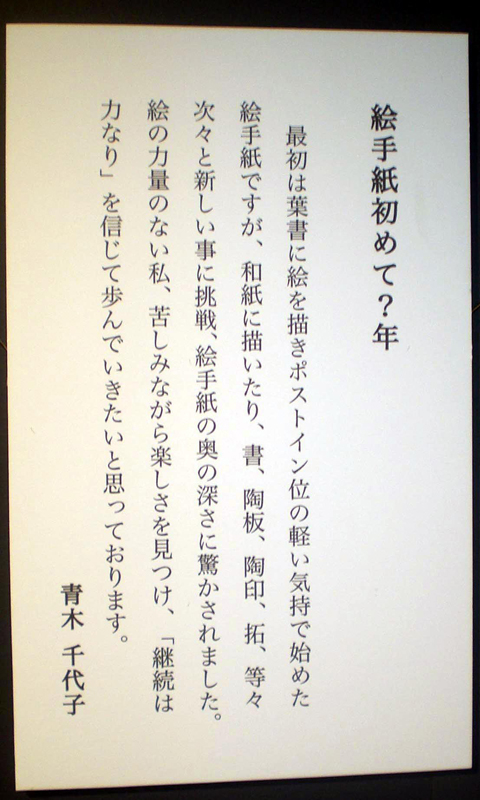 絵手紙初めて？年
最初は葉書に絵を描きポストイン位の軽い気持で始めた
絵手紙ですが、和紙に描いたり、書、陶板、陶印、拓、等々
次々と新しい事に挑戦、絵手紙の奥の深さに驚かされました。
絵の力量のない私、苦しみながら楽しさを見つけ、「継続は
力なり」を信じて歩んでいきたいと思っております。
青木 千代子